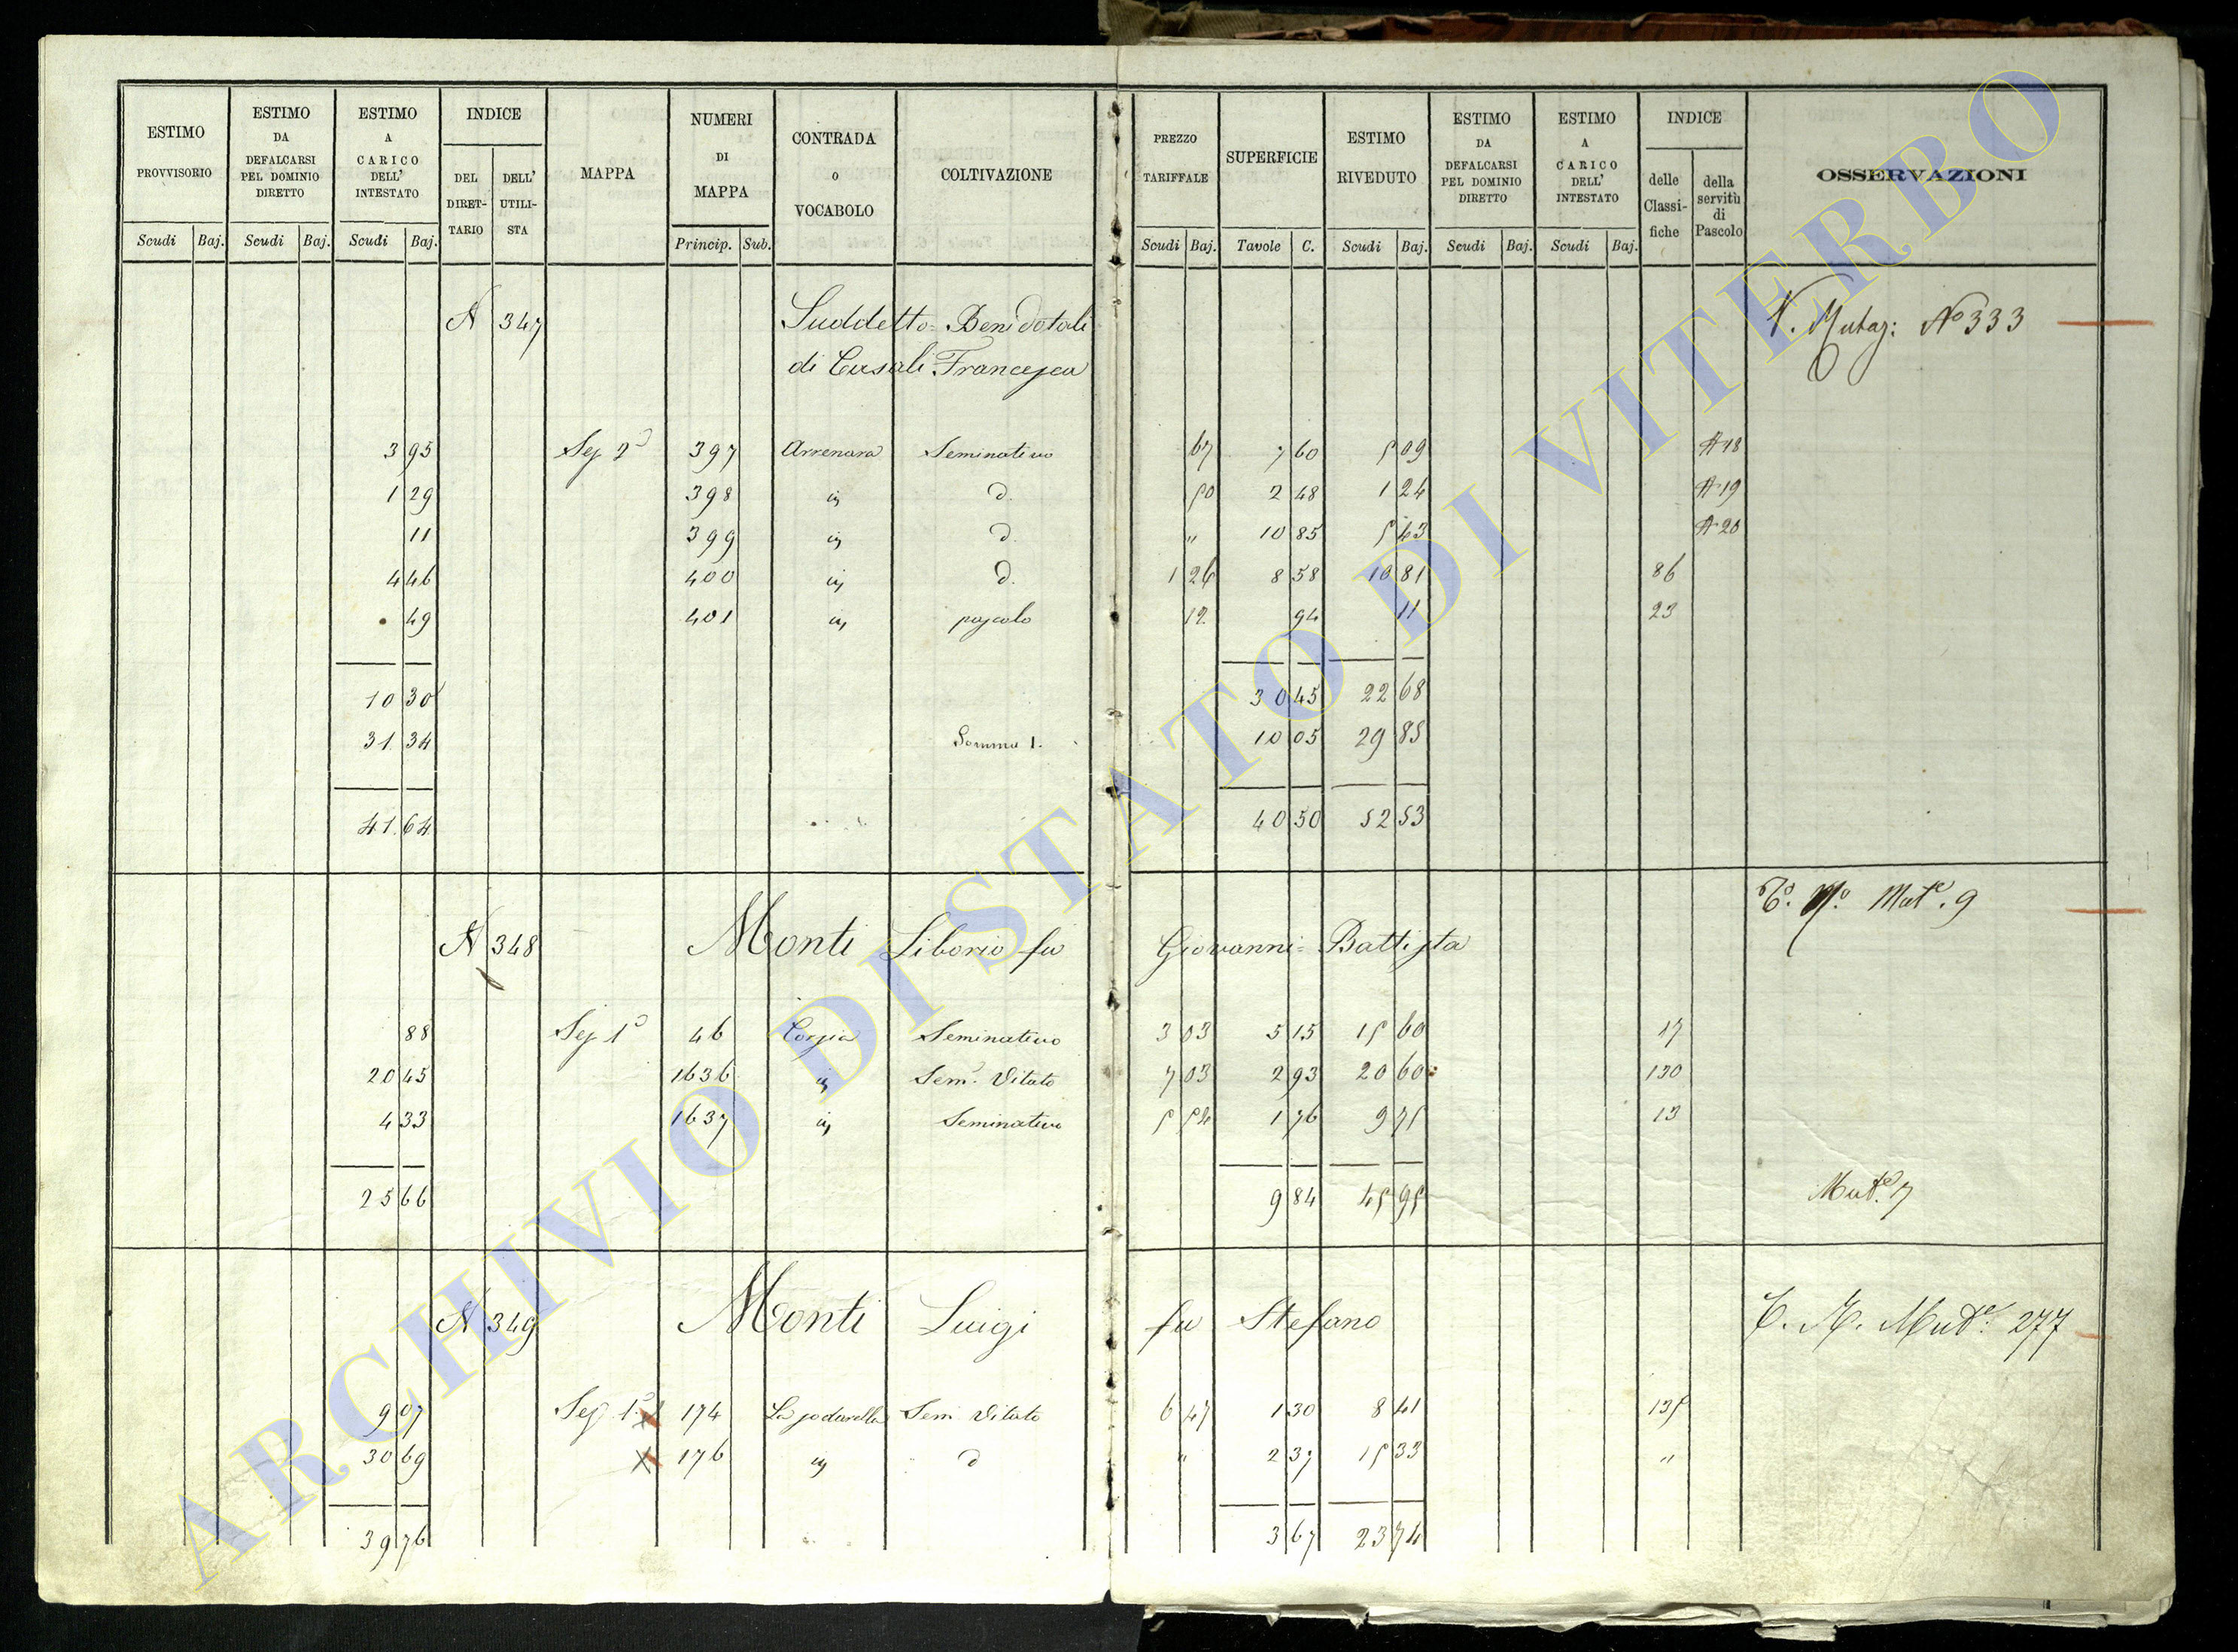 ESTIMO PROVVISORIO
ESTIMO DA DEFALCARSI PEL DOMINIO DIRETTO
ESTIMO A CARICO DELL' INTESTATO
INDICE
DEL DIRET-TARIO
DELL' UTILI-STA
MAPPA
NUMERI DI MAPPA
CONTRADA O VOCABOLO
COLTIVAZIONE
PREZZO TARIFFALE
SUPERFICIE
ESTIMO RIVEDUTO
ESTIMO DA DEFALCARSI PEL DOMINIO DIRETTO
ESTIMO A CARICO DELL' INTESTATO
INDICE
delle Classi-fiche
della servitù di Pascolo
OSSERVAZIONI
Scudi Baj. Scudi Baj. Scudi Baj. Princip. Sub. Scudi Baj. Tavole C. Scudi Baj. Scudi Baj. Scudi Baj.
N 347 Suddetto = Beni dotali V. Mutaz: No 333
di Casali Francesca
3 95 Sez 2a 397 Arrenara Seminativo 67 7 60 5 09 A 18
1 29 398 d. 50 2 48 1 24 A 19
11 399 d. " 10 85 5 43 A 20
4 46 400 d. 1 26 8 58 10 81 86
49 401 pascolo 12 94 11 23
10 30 30 45 22 68
31 34 Somma 1. 10 05 29 85
41 64 40 50 52 53
Mut. 9
N 348 Monti Liborio fu Giovanni = Battista
88 Sez 1a 46 Seminativo 3 03 5 15 15 60 17
20 45 1636 Sem. Vitato 7 03 2 93 20 60 130
4 33 1637 Seminativo 5 54 1 76 9 75 13
25 66 9 84 45 95 Mut. 7
N 349 Monti Luigi fu Stefano Mut. 277
9 07 Sez 1a 174 Sem Vitato 6 47 1 30 8 41 135
30 69 176 d " 2 37 15 33 "
39 76 3 67 23 74
ARCHIVIO DI STATO DI VITERBO